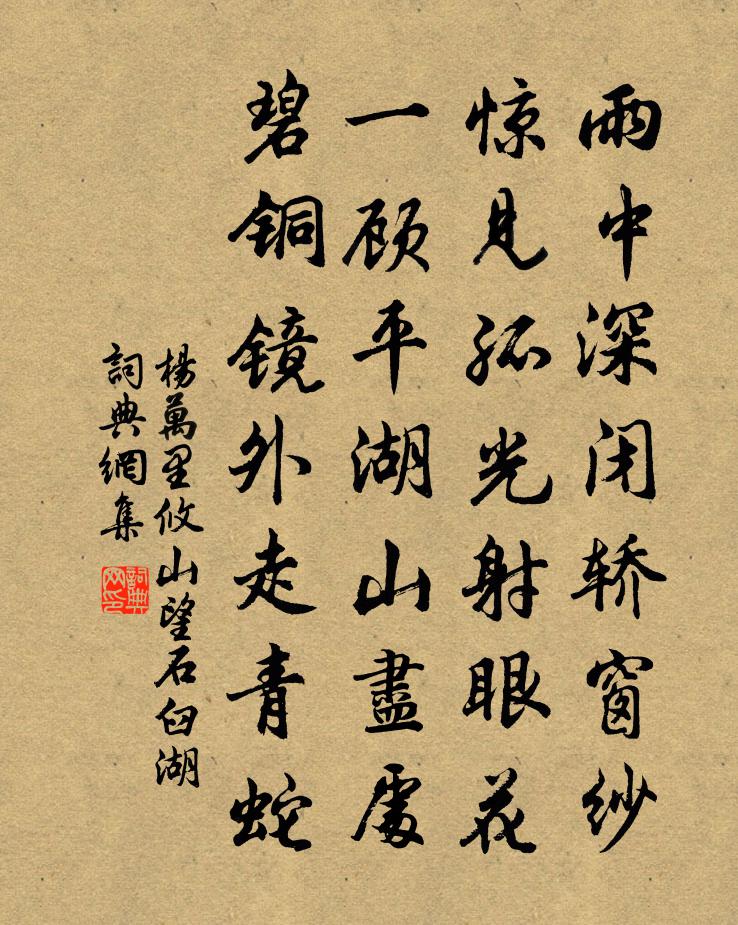 雨中深闭轿窗纱
惊见孤光射眼花
一顾平湖山盡處
碧铜镜外走青蛇
楊萬里攸山望石臼湖
詞典網集
詞典网印